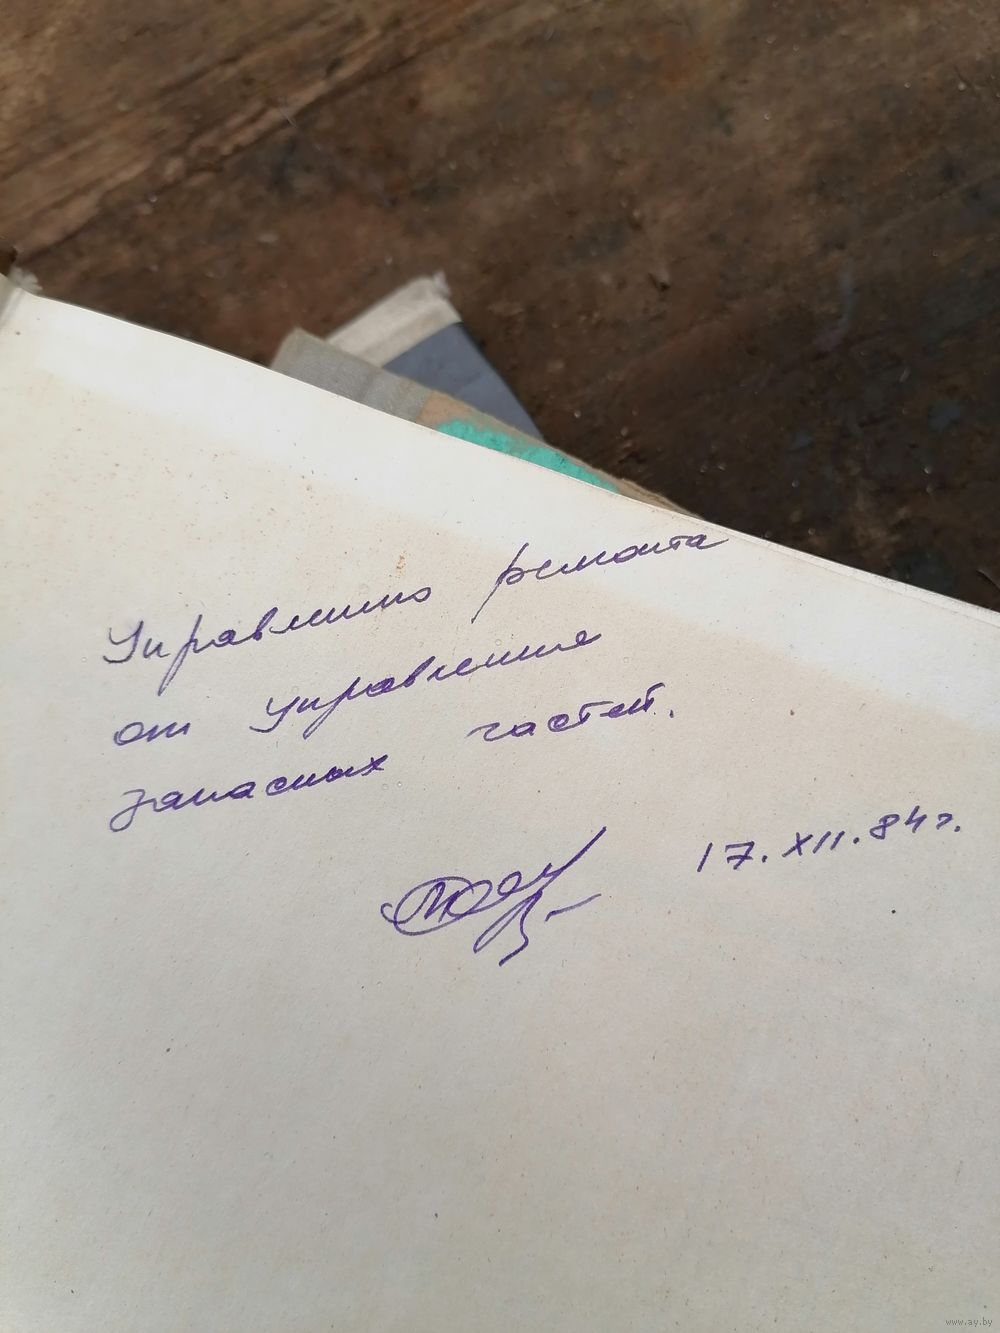 Управлению ремонта
от Управления
запасных частей.
17.XII.84г.
www.ay.by